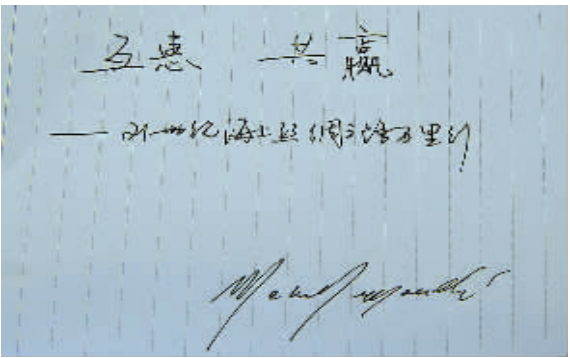 互惠 共赢
——21世纪海上丝绸之路万里行